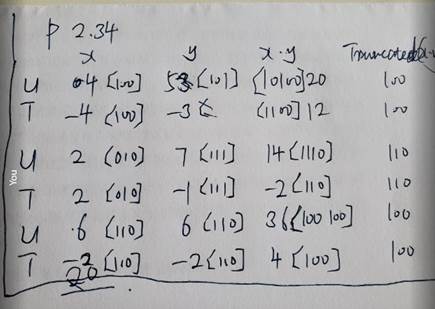 P 2.34
x y x·y Truncated
U 4 [100] 5 [101] [10100] 20 100
T -4 [100] -3 [1100] 12 100
U 2 [010] 7 [111] 14 [1110] 110
T 2 [010] -1 [111] -2 [110] 110
U 6 [110] 6 [110] 36 [100 100] 100
T -2 [110] -2 [110] 4 [100] 100
You